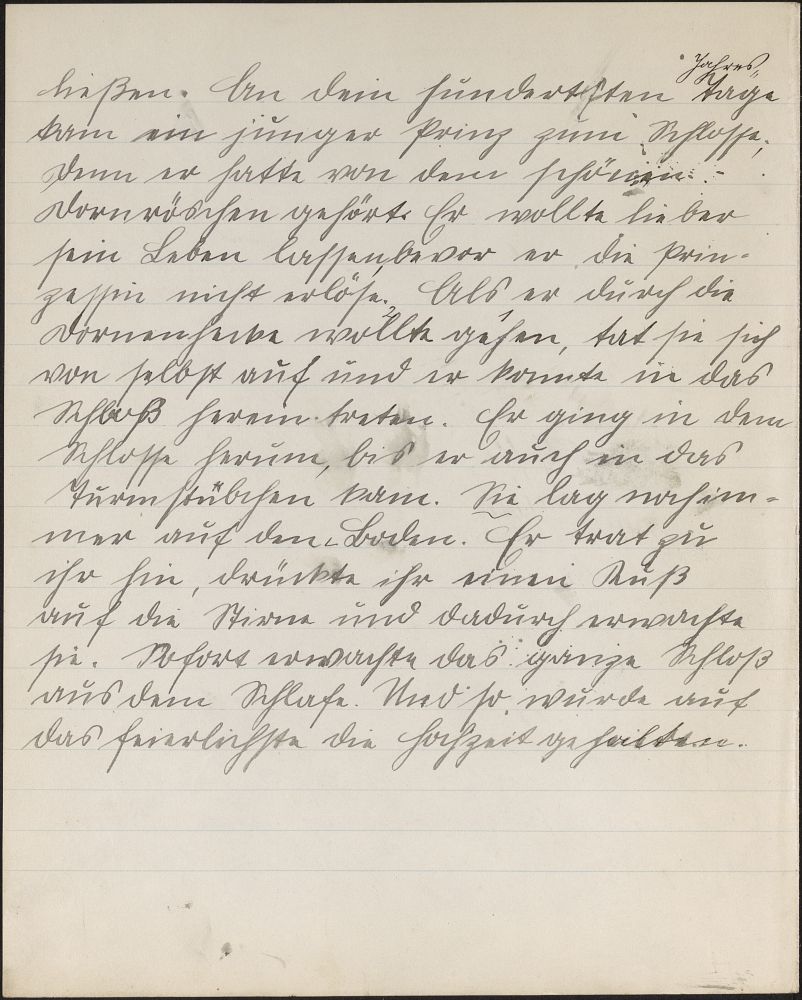 Jahres-
ließen. An dem hundertsten Tage
kam ein junger Prinz zum Schlosse,
denn er hatte von dem schönen
Dornröschen gehört. Er wollte lieber
sein Leben lassen, bevor er die Prin-
zessin nicht erlöse. Als er durch die
Dornenhecke wollte gehen, tat sie sich
von selbst auf und er konnte in das
Schloß herein treten. Er ging in dem
Schlosse herum, bis er auch in das
Turmstübchen kam. Sie lag noch im-
mer auf den Boden. Er trat zu
ihr hin, drückte ihr einen Kuß
auf die Stirne und dadurch erwachte
sie. Sofort erwachte das ganze Schloß
aus dem Schlafe. Und so wurde auf
das feierlichste die Hochzeit gehalten.